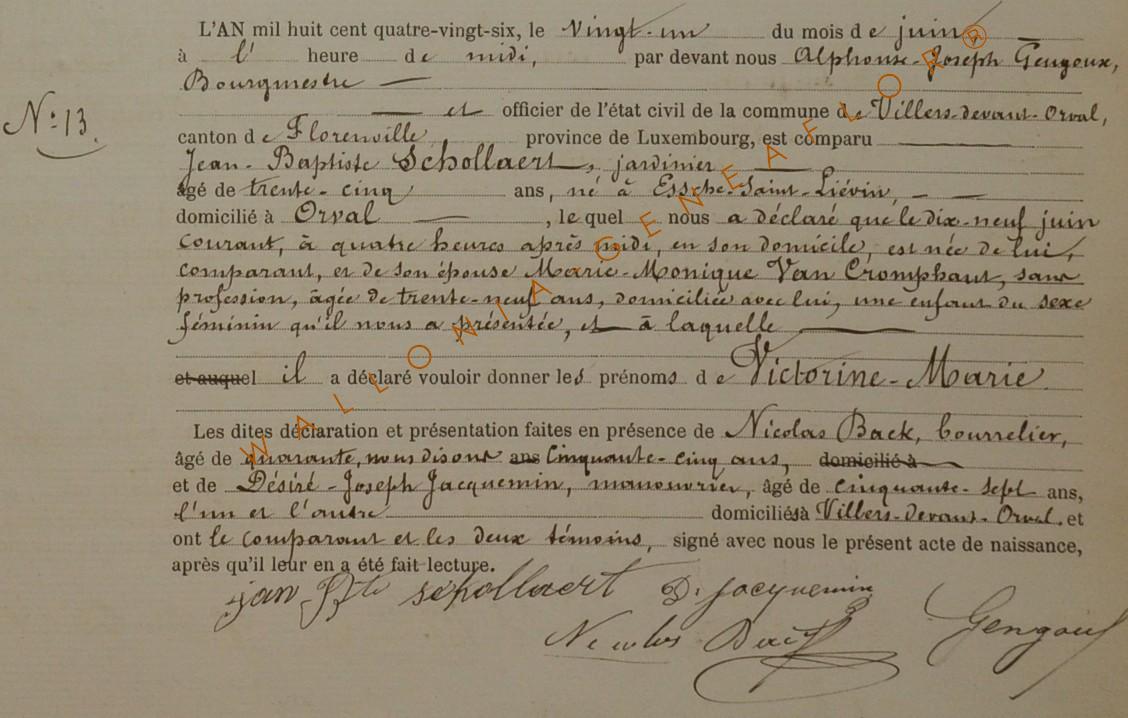 L'AN mil huit cent quatre-vingt-six, le vingt-un du mois de juin
à l' heure de midi, par devant nous Alphonse-Joseph Gengoux,
Bourgmestre
N° 13
et officier de l'état civil de la commune de Villers-devant-Orval,
canton de Florenville, province de Luxembourg, est comparu
Jean-Baptiste Schollaert, jardinier
âgé de trente-cinq ans, né à Essche-Saint-Liévin,
domicilié à Orval, le quel nous a déclaré que le dix-neuf juin
courant, à quatre heures après midi, en son domicile, est née de lui,
comparant, et de son épouse Marie-Monique Van Cromphaut, sans
profession, âgée de trente-neuf ans, domiciliée avec lui, une enfant du sexe
féminin qu'il nous a présentée, et à laquelle
et auquel il a déclaré vouloir donner les prénoms de Victorine-Marie
Les dites déclaration et présentation faites en présence de Nicolas Back, bourrelier,
âgé de quarante, nous disons ans cinquante-cinq ans, domicilié à
et de Désiré-Joseph Jacquemin, manouvrier, âgé de cinquante-sept ans,
l'un et l'autre domiciliés à Villers-devant-Orval. et
ont le comparant et les deux témoins, signé avec nous le présent acte de naissance,
après qu'il leur en a été fait lecture.
jan Bte schollaert D. Jacquemin
Nicolas Back Gengoux
WALLONIA GENEALOR ®